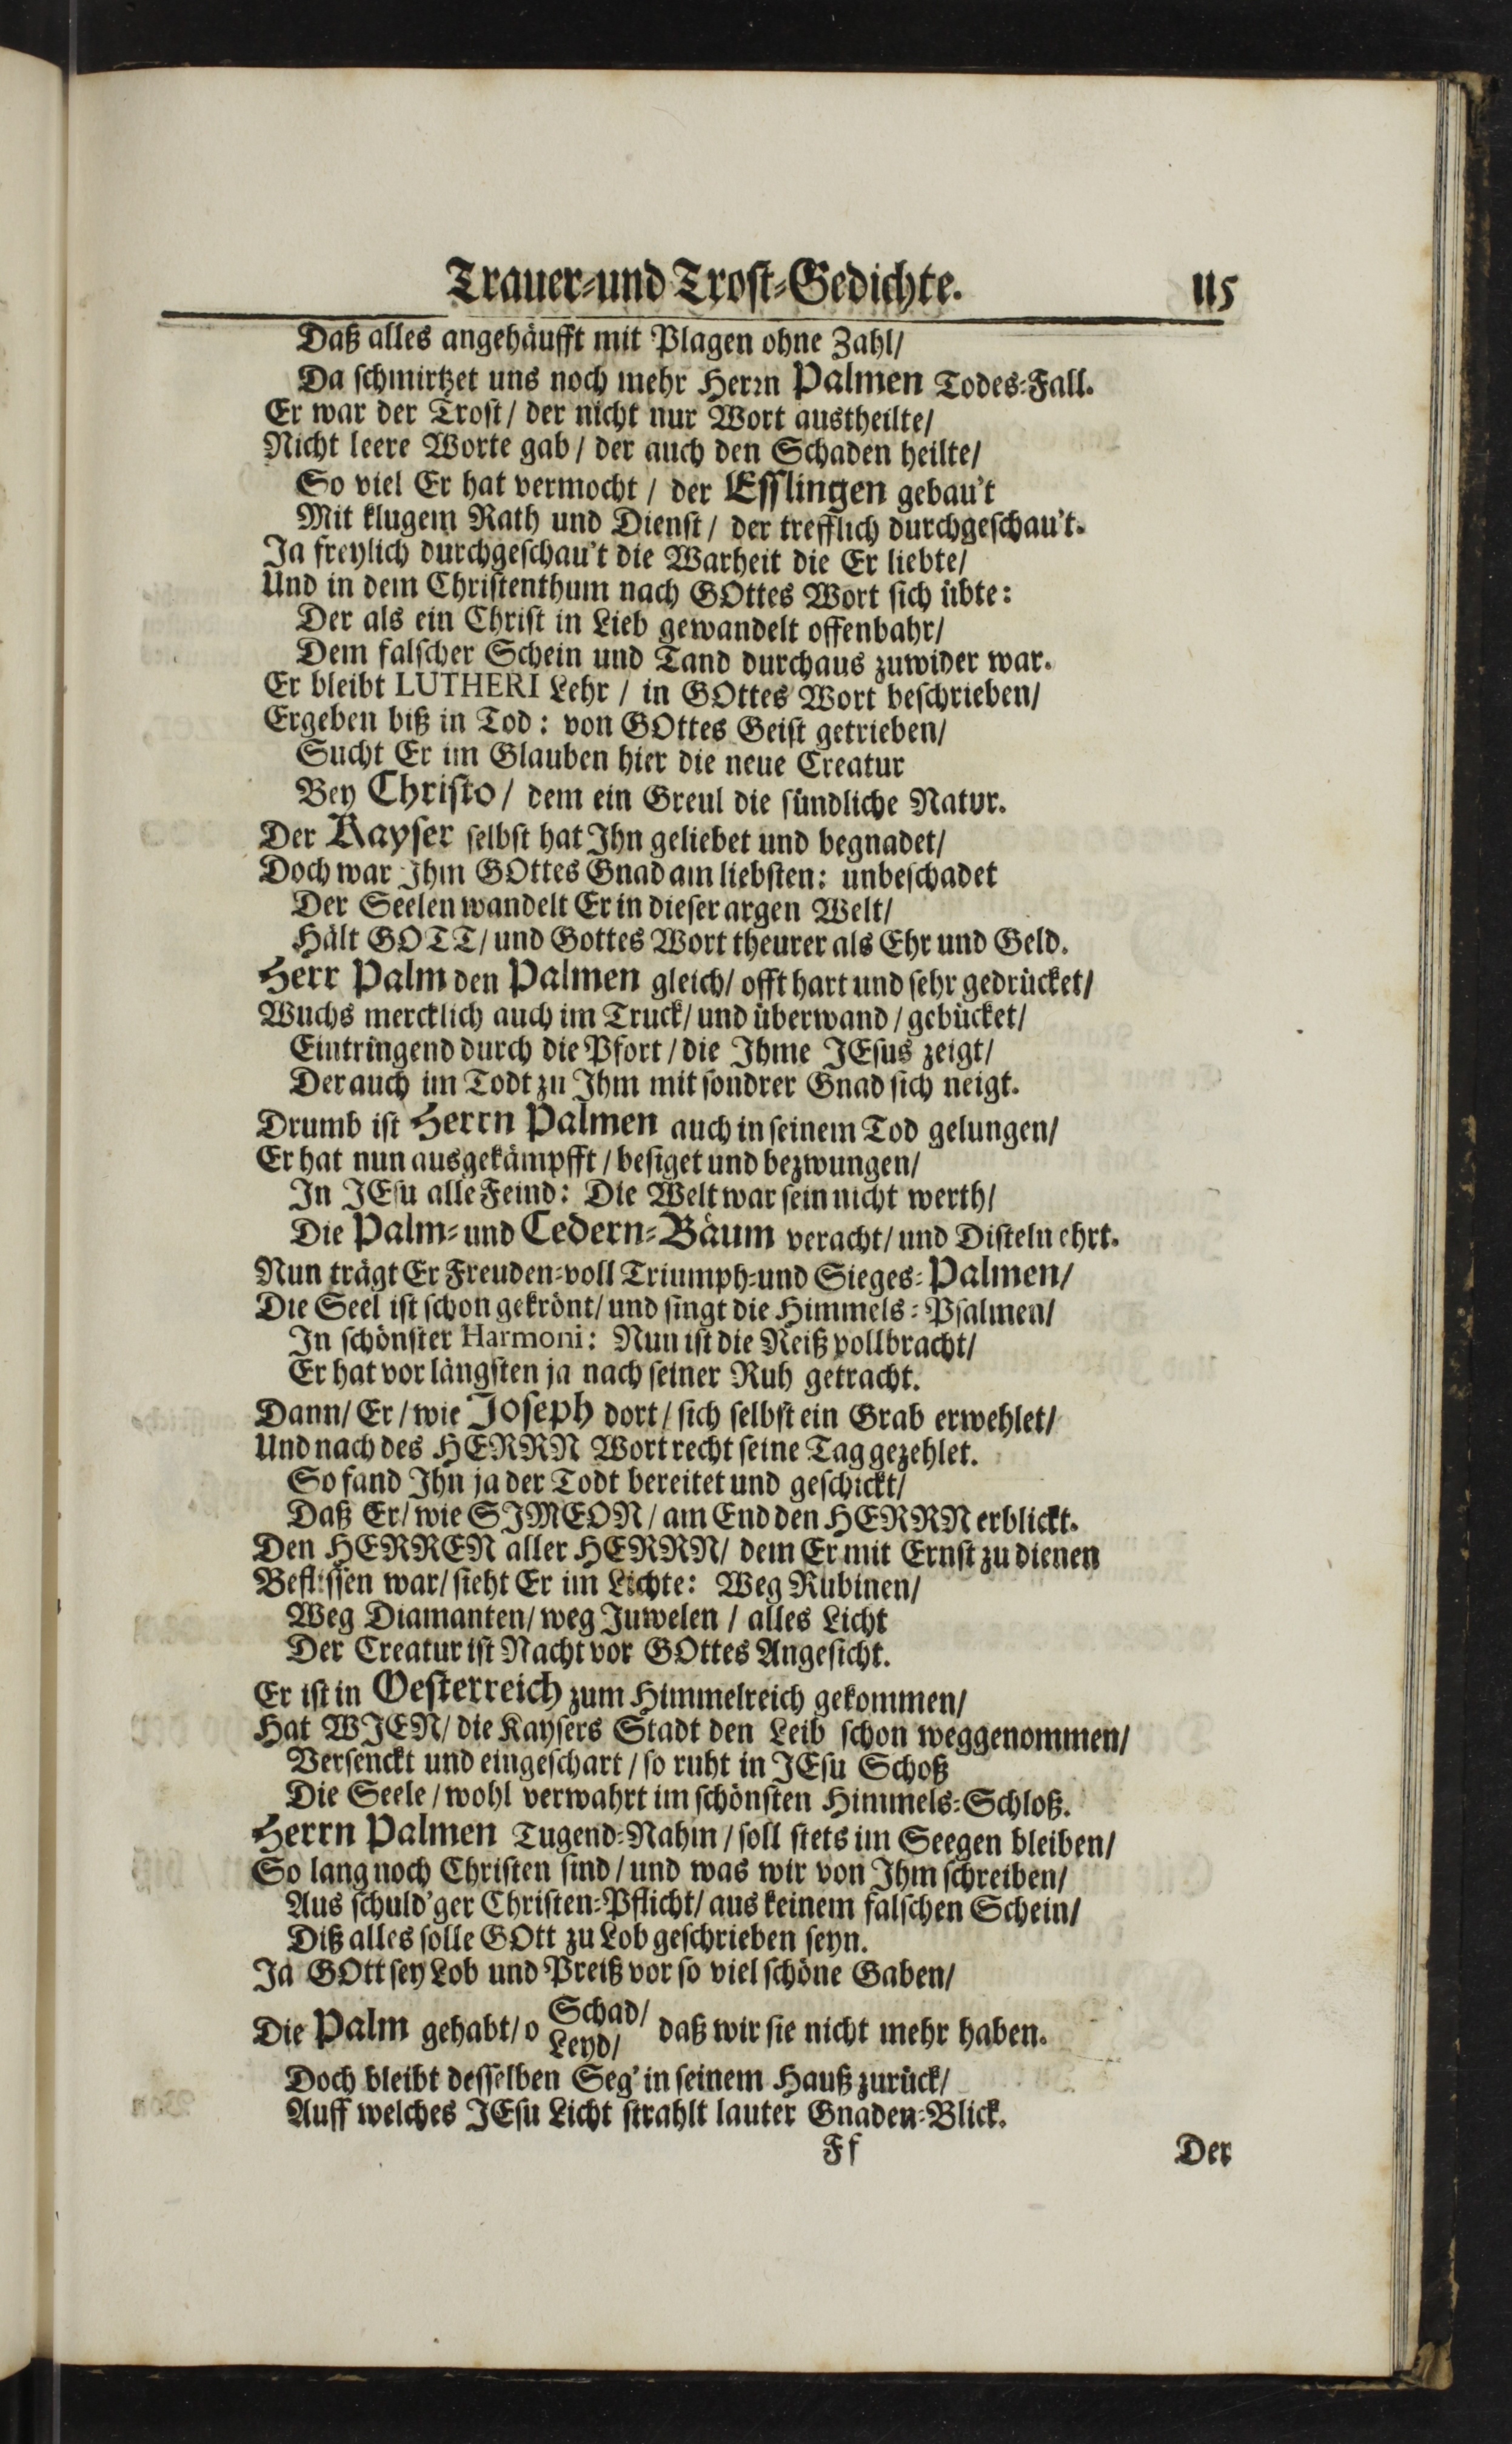 Trauer-und Trost-Gedichte. 115
Daß alles angehäufft mit Plagen ohne Zahl/
Da schmirtzet uns noch mehr Herrn Palmen Todes-Fall.
Er war der Trost/ der nicht nur Wort austheilte/
Nicht leere Worte gab/ der auch den Schaden heilte/
So viel Er hat vermocht / der Esslingen gebau't
Mit klugem Rath und Dienst/ der trefflich durchgeschau't.
Ja freylich durchgeschau't die Warheit die Er liebte/
Und in dem Christenthum nach GOttes Wort sich übte:
Der als ein Christ in Lieb gewandelt offenbahr/
Dem falscher Schein und Tand durchaus zuwider war.
Er bleibt LUTHERI Lehr / in GOttes Wort beschrieben/
Ergeben biß in Tod: von GOttes Geist getrieben/
Sucht Er im Glauben hier die neue Creatur
Bey Christo/ dem ein Greul die sündliche Natur.
Der Kayser selbst hat Ihn geliebet und begnadet/
Doch war Ihm GOttes Gnad am liebsten: unbeschadet
Der Seelen wandelt Er in dieser argen Welt/
Hält GOTT/ und Gottes Wort theurer als Ehr und Geld.
Herr Palm den Palmen gleich/ offt hart und sehr gedrücket/
Wuchs mercklich auch im Truck/ und überwand/ gebücket/
Eintringend durch die Pfort/ die Ihme JEsus zeigt/
Der auch im Todt zu Ihm mit sondrer Gnad sich neigt.
Drumb ist Herrn Palmen auch in seinem Tod gelungen/
Er hat nun ausgekämpfft/ besiget und bezwungen/
In JEsu alle Feind: Die Welt war sein nicht werth/
Die Palm- und Cedern-Bäum veracht/ und Disteln ehrt.
Nun trägt Er Freuden-voll Triumph-und Sieges-Palmen/
Die Seel ist schon gekrönt/ und singt die Himmels-Psalmen/
In schönster Harmoni: Nun ist die Reiß vollbracht/
Er hat vor längsten ja nach seiner Ruh getracht.
Dann/ Er/ wie Joseph dort/ sich selbst ein Grab erwehlet/
Und nach des HERRN Wort recht seine Tag gezehlet.
So fand Ihn ja der Todt bereitet und geschickt/
Daß Er/ wie SIMEON/ am End den HERRN erblickt.
Den HERREN aller HERRN/ dem Er mit Ernst zu dienen
Beflissen war/ sieht Er im Lichte: Weg Rubinen/
Weg Diamanten/ weg Juwelen / alles Licht
Der Creatur ist Nacht vor GOttes Angesicht.
Er ist in Oesterreich zum Himmelreich gekommen/
Hat WIEN/ die Kaysers Stadt den Leib schon weggenommen/
Versenckt und eingeschart/ so ruht in JEsu Schoß
Die Seele/ wohl verwahrt im schönsten Himmels-Schloß.
Herrn Palmen Tugend-Nahm/ soll stets im Seegen bleiben/
So lang noch Christen sind/ und was wir von Ihm schreiben/
Aus schuld'ger Christen-Pflicht/ aus keinem falschen Schein/
Diß alles solle GOtt zu Lob geschrieben seyn.
Ja GOtt sey Lob und Preiß vor so viel schöne Gaben/
Die Palm gehabt/ o Schad/ Leyd/ daß wir sie nicht mehr haben.
Doch bleibt desselben Seg' in seinem Hauß zurück/
Auff welches JEsu Licht strahlt lauter Gnaden-Blick.
Ff Der